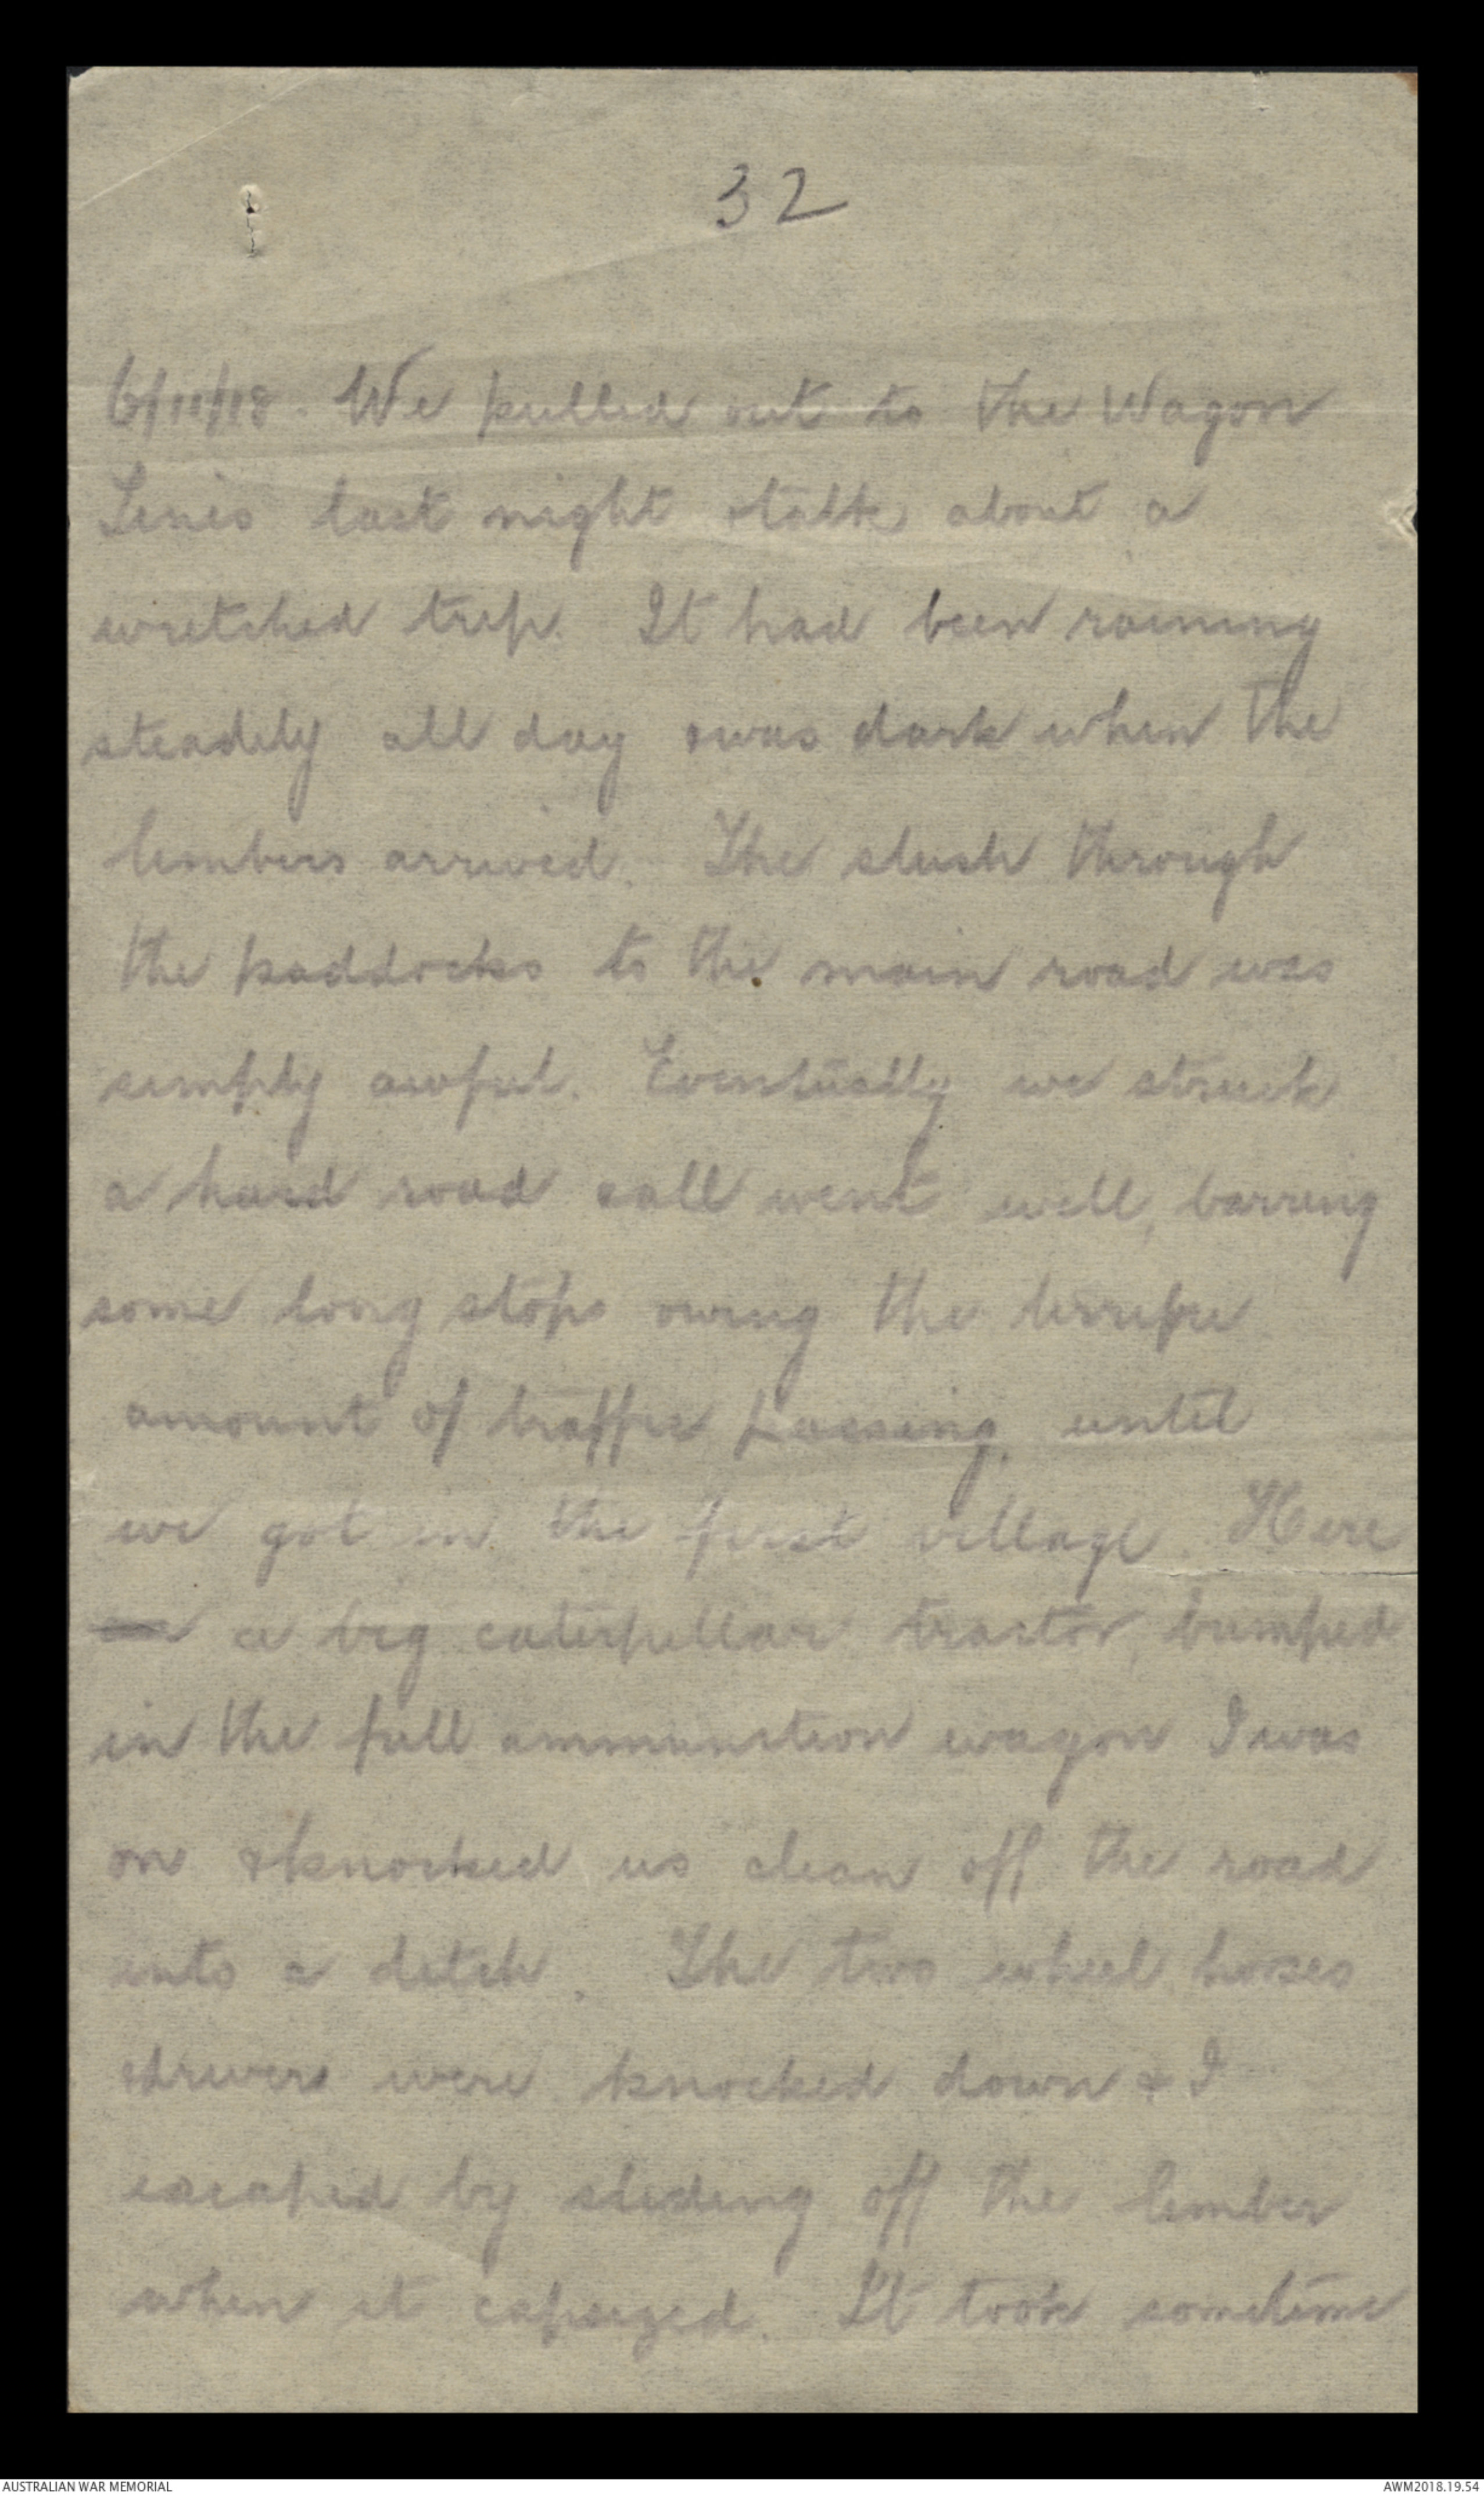 32
6/11/18. We pulled out to the Wagon
Lines last night & talk about a
wretched trip. It had been raining
steadily all day & was dark when the
limbers arrived. The slush through
the paddocks to the main road was
simply awful. Eventually we struck
a hard road & all went well, barring
some long stops owing the terrific
amount of traffic passing, until
we got in the first village. Here
a big caterpillar tractor, bumped
in the full ammunition wagon I was
on & knocked us clean off the road
into a ditch. The two wheel horses
& drivers were knocked down & I
escaped by sliding off the limber
when it capsized. It took sometime
AUSTRALIAN WAR MEMORIAL
AWM2018.19.54